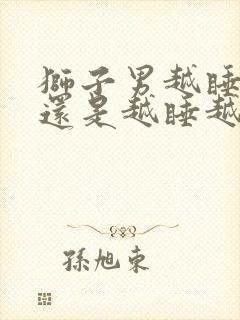 獅子男越睡
還是越睡越
孫旭東